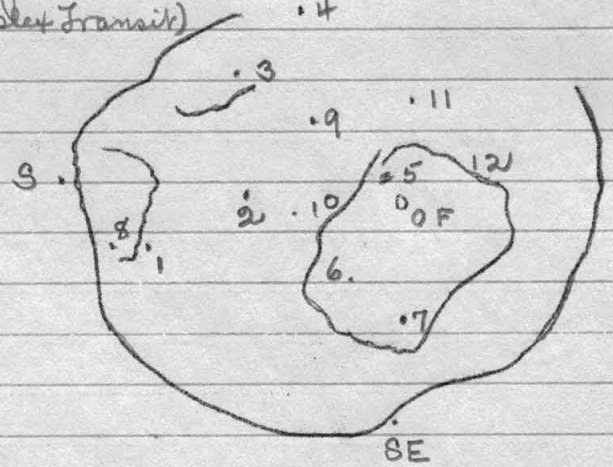 Transit)
4
3
11
9
5 12
S
2 10 O F
8 1
6
7
SE